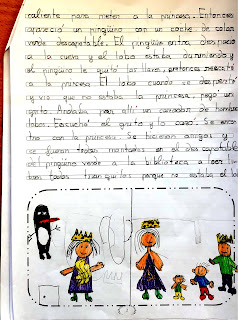 caliente para meter a la princesa. Entonces
apareció un pingüino con un coche de color
verde descapotable. El pingüino entra despacio
a la cueva y el lobo estaba durmiendo y
el pingüino le quitó las llaves, pretence rescató
a la princesa. El lobo cuando se despertó
y vio que no estaba la princesa pegó un
grito. Andaba por allí un cazador de hombre
lobo. Escuchó el grito y lo cazó. Se encon
tró con la princesa. Se hicieron amigos y
se fueron todos montados en el descapotable
del pingüino verde a la biblioteca a leer li
bros todos tranquilos porque no estaba el lo